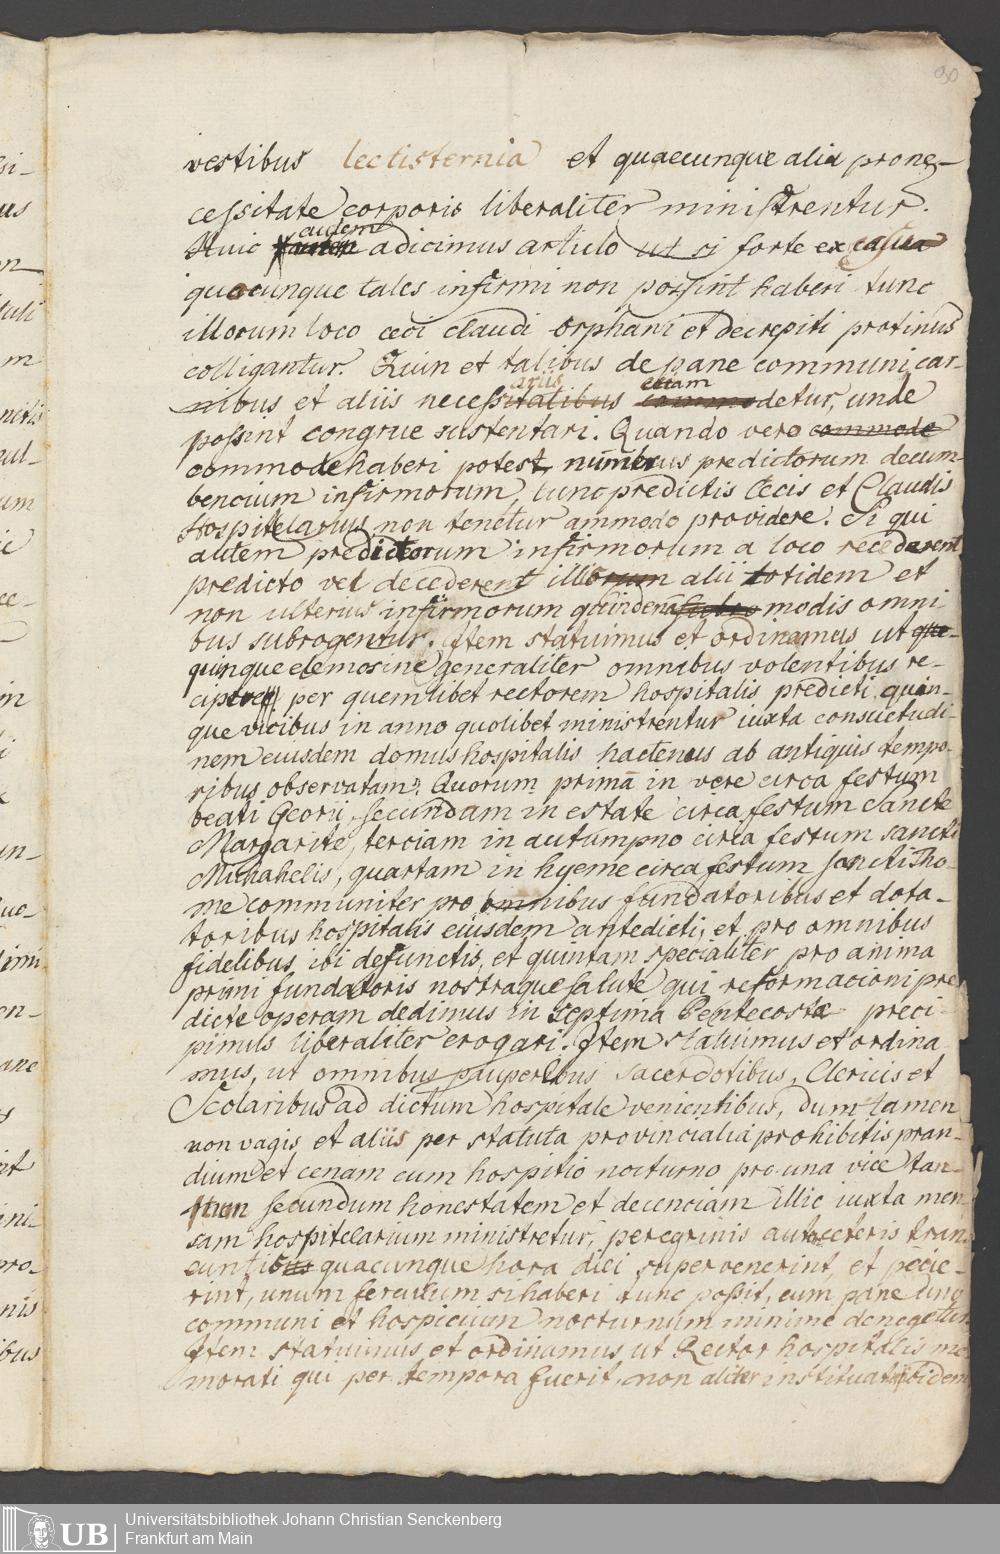 90
vestibus lectisternia et quaecunque alia prone-
cessitate corporis liberaliter ministrentur.
Huic autem adicimus articulo ut si forte ex causa
quacunque tales infirmi non possint haberi tunc
illorum loco ceci claudi orphani et decrepiti protinus
colligantur. Quin et talibus de pane communi, car-
nibus et aliis necessariis etiam detur, unde
possint congrue sustentari. Quando vero commode
commode haberi potest numerus predictorum decum-
bencium infirmorum, tunc predictis Cecis et Claudis
Hospitelarius non tenetur ammodo providere. Si qui
autem predictorum infirmorum a loco recederent
predicto vel decederent illorum alii totidem et
non ulterius infirmorum quindena modis omni
bus subrogentur. Item statuimus et ordinamus ut que-
quinque elemosine generaliter omnibus volentibus re-
cipere per quemlibet rectorem hospitalis predicti quin-
que vicibus in anno quolibet ministrentur iuxta consuetudi-
nem eiusdem domus hospitalis hactenus ab antiquis tempo-
ribus observatam. Quorum primā in vere circa festum
beati Georii, secundam in estate circa festum Sancte
Margarite, terciam in autumpno circa festum sancti
Michahelis, quartam in hyeme circa festum sancti Tho-
me communiter pro omnibus fundatoribus et dota-
toribus hospitalis eiusdem antedicti, et pro omnibus
fidelibus ibi defunctis, et quintam specialiter pro anima
primi fundatoris nostraque salute qui reformacioni pre
dicte operam dedimus in septima Pentecoste preci-
pimus liberaliter erogari. Item statuimus et ordina
mus, ut omnibus pauperibus Sacerdotibus, Clericis et
Scolaribus ad dictum hospitale venientibus, dum tamen
non vagis et aliis per statuta provincialia prohibitis pran-
dium et cenam cum hospitio nocturno pro una vice tan-
tum secundum honestatem et decenciam illic iuxta men-
sam hospitelarium ministretur, peregrinis aut. ceteris tran-
euntibus quacunque hora diei supervenerint, et pecie-
rint, unum ferculum si haberi tunc possit, cum pane uno
communi et hospicium nocturnum minime denegetur
Item statuimus et ordinamus ut Rector hospitalis me
morati qui per tempora fuerit, non aliter instituatur ibidem
UB Universitätsbibliothek Johann Christian Senckenberg
Frankfurt am Main